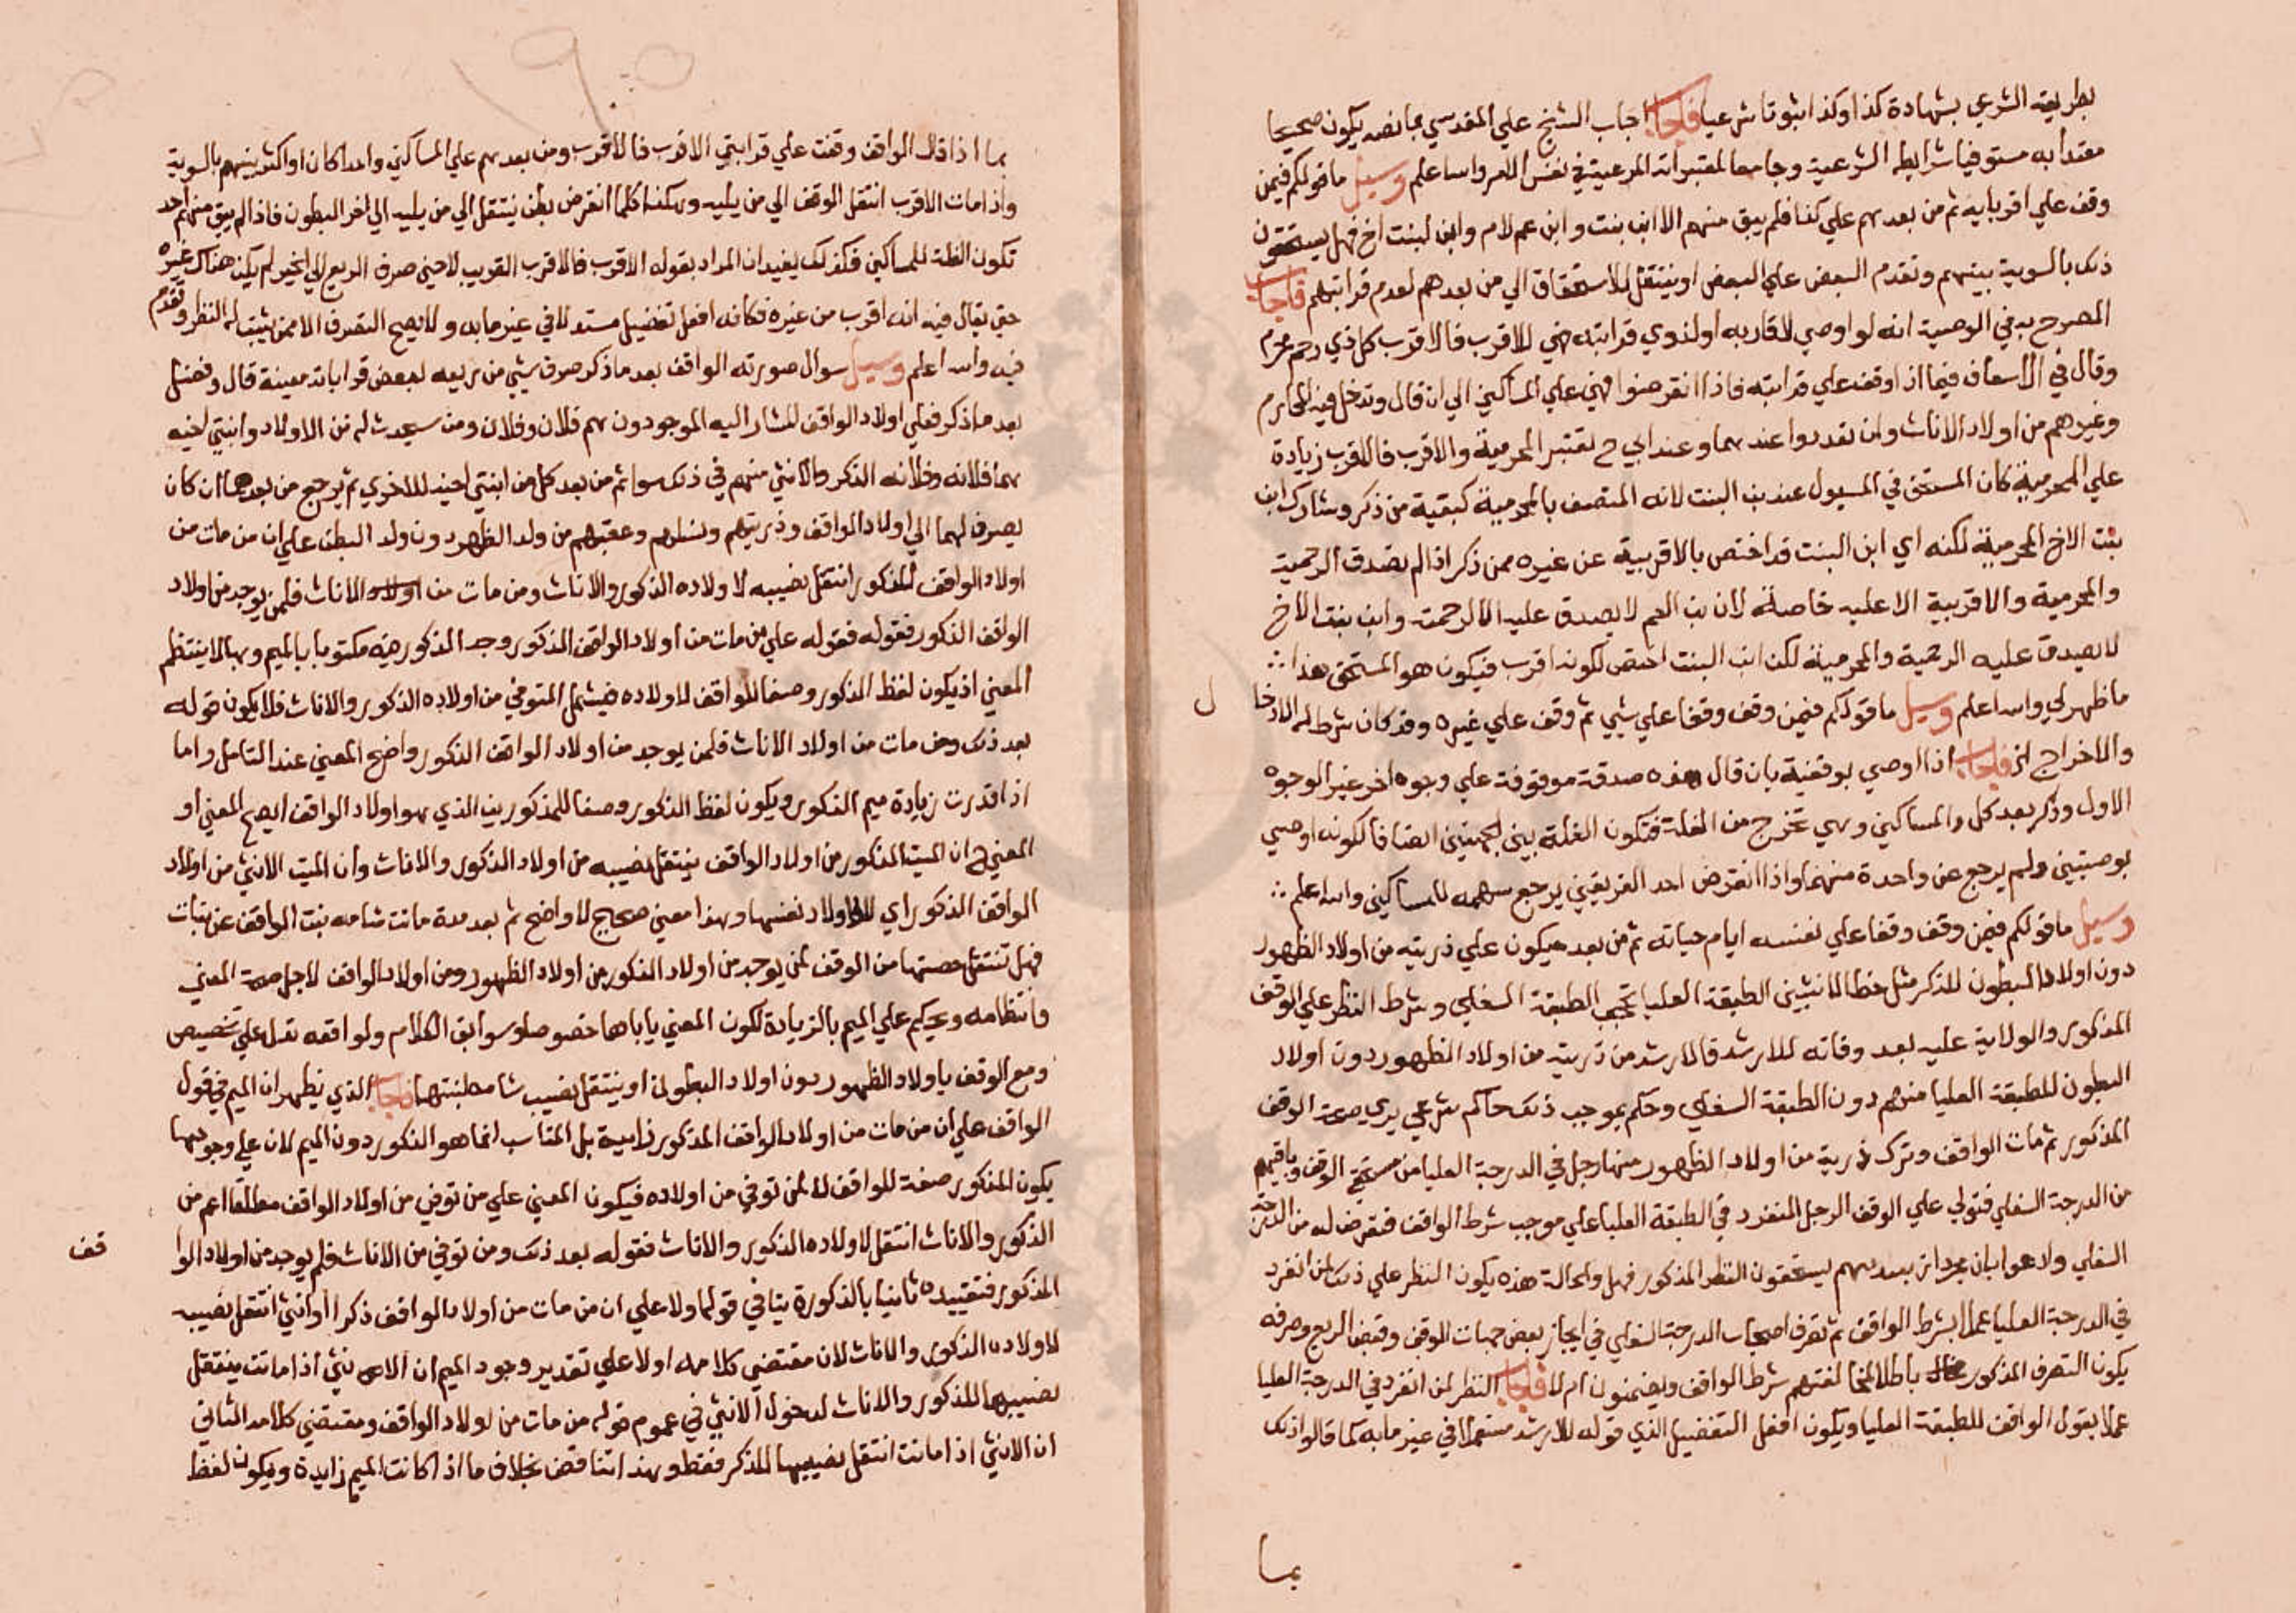 بطريقه الشرعي بشهادة كذا وكذا ثبوتا شرعيا فاجاب اجاب الشيخ علي المقدسي بما نصه يكون صحيحا
معتدا به مستوفيا شرايطه الشرعية وجامعا لمعتبراته المرعية في نفس الامر واسه اعلم وسيل ما قولكم فيمن
وقف علي اقربايه ثم من بعدهم علي كذا فلم يبق منهم الا ابن بنت وابن عم لام وابن لبنت اخ فهل يستحقون
ذلك بالسوية بينهم وتقدم البعض علي البعض او ينتقل الاستحقاق الي من بعدهم لعدم قرابتهم فاجاب
المصرح به في الوصية انه لو اوصي لاقاربه او لذوي قرابته فهي للاقرب فالاقرب كل ذي رحم محرم
وقال في الاسعاف فيما اذا وقف علي قرابته فاذا انقرضوا فهي علي المساكين الي ان قال وتدخل فيه المحارم
وغيرهم من اولاد الاناث وان بعدوا عندهما وعند ابي ح تعتبر المحرمية والاقرب فالاقرب زيادة
علي المحرمية كان المستحق في المسيول عنه بن البنت لانه المتصف بالمحرمية كبقية من ذكر وشارك ابن
بنت الاخ المحرمية لكنه اي ابن البنت قد اختص بالاقربية عن غيره ممن ذكر اذ لم تصدق الرحمية
والمحرمية والاقربية الا عليه خاصة لان بن العم لا يصدق عليه الا الرحمية وابن بنت الاخ
لا يصدق عليه الرحمية والمحرمية لكن ابن البنت اختص لكونه اقرب فيكون هو المستحق هذا
ما ظهر لي واسه اعلم وسيل ما قولكم فيمن وقف وقفا علي شيي ثم وقف علي غيره وقد كان شرط له الادخا
ل
والاخراج الخ فاجاب اذا اوصي بوقفية بان قال هذه صدقة موقوفة علي وجوه اخر غير الوجوه
الاول وذكر بعد كل والمساكين وهي تخرج من الغلة فتكون الغلة بين الجهتين انصافا لكونه اوصي
بوصيتين ولم يرجع عن واحدة منهما واذا انقرض احد الفريقين يرجع سهمه للمساكين واسه اعلم
وسيل ما قولكم فيمن وقف وقفا علي نفسه ايام حياته ثم من بعده يكون علي ذريته من اولاد الظهور
دون اولاد البطون للذكر مثل حظ الانثيين الطبقة العليا تحجب الطبقة السفلي وشرط النظر علي الوقف
المذكور والولاية عليه بعد وفاته للارشد فالارشد من ذريته من اولاد الظهور دون اولاد
البطون للطبقة العليا منهم دون الطبقة السفلي وحكم بموجب ذلك حاكم شرعي يري صحة الوقف
المذكور ثم مات الواقف وترك ذرية من اولاد الظهور منها رجل في الدرجة العليا من مستحقي الوقف وباقيهم
من الدرجة السفلي فتولي علي الوقف الرجل المنفرد في الطبقة العليا علي موجب شرط الواقف فتعرض له من الدرجة
السفلي وادعوا بان يستحقون النظر المذكور فهل والحالة هذه يكون النظر علي ذلك لمن انفرد
في الدرجة العليا عملا بشرط الواقف ثم تصرف اصحاب الدرجة السفلي في ايجار بعض جهات الوقف وقبض الريع وصرفه
يكون التصرف المذكور باطلا لمخالفتهم شرط الواقف ويضمنون ام لا فاجاب النظر لمن انفرد في الدرجة العليا
عملا بقول الواقف للطبقة العليا ويكون افعل التفضيل الذي قوله للارشد مستعملا في غير ما به كما قالوا ذلك
بما
بما اذا قال الواقف وقفت علي قرابتي الاقرب فالاقرب ومن بعدهم علي المساكين واحدا كان او اكثر بينهم بالسوية
واذا مات الاقرب انتقل الوقف الي من يليه وهكذا كلما انقرض بطن ينتقل الي من يليه الي اخر البطون فاذا لم يبق منهم احد
تكون الغلة للمساكين فكذلك يفيد ان المراد بقوله الاقرب فالاقرب القريب لا حين صرف الريع الي اخير لم يكن هناك غيره
حتي يقال فيه انه اقرب من غيره فكانه افعل تفضيل مستعملا في غير ما به ولا يصح التصرف الا ممن يثبت له النظر وتقدم
فيه واسه اعلم وسيل سوال صورته الواقف بعد ما ذكر صرف شيي من ريعه لبعض قرابات معينة قال وفضل
بعد ما ذكر فعلي اولاد الواقف المشار اليه الموجودون هم فلان وفلان ومن سيحدث له من الاولاد وابنتي اخيه
هما فلانه وفلانه الذكر والانثي منهم في ذلك سوا ثم من بعد كل من ابنتي اخيه للاخري ثم يرجع من بعدهما ان كان
يصرف لهما الي اولاد الواقف وذريتهم ونسلهم وعقبهم من ولد الظهر دون ولد البطن علي ان من مات من
اولاد الواقف المذكور انتقل نصيبه لاولاده الذكور والاناث ومن مات من اولاد الاناث فلمن يوجد من اولاد
الواقف الذكور فقوله فقوله علي من مات من اولاد الواقف المذكور وجد المذكور فيه مكتوبا بالميم وبها لا ينتظم
المعني اذ يكون لفظ المذكور وصفا للواقف لا اولاده فيشمل المتوفي من اولاده الذكور والاناث فلا يكون قوله
بعد ذلك ومن مات من اولاد الاناث فلمن يوجد من اولاد الواقف الذكور واضح المعني عند التامل واما
اذا قدرت زيادة ميم المذكور ويكون لفظ الذكور وصفا للمذكورين الذي هو اولاد الواقف ايصح المعني او
المعني ح ان الميت المذكور من اولاد الواقف ينتقل نصيبه من اولاد الذكور والاناث وان الميت الانثي من اولاد
الواقف الذكور اي لاولاد نفسها وهذا معني صحيح لا واضح ثم بعد مدة ماتت شامه بنت الواقف عن بنات
فهل تنتقل حصتها من الوقف لمن يوجد من اولاد الذكور من اولاد الظهور ومن اولاد الواقف لاجل صحة المعني
وانتظامه ويحكم علي الميم بالزيادة لكون المعني ياباها خصوصا وسوابق الكلام ولواحقه تدل علي تخصيص
الوقف باولاد الظهور دون اولاد البطون او ينتقل نصيب شامه لبنتها فاجاب الذي يظهر ان الميم في قول
الواقف علي ان من مات من اولاد الواقف المذكور زايدة بل المناسب انما هو الذكور دون الميم لان علي وجودها
يكون المذكور صفة للواقف لا لمن توفي من اولاده فيكون المعني علي من توفي من اولاد الواقف مطلقا اعم من
الذكور والاناث انتقل لاولاده الذكور والاناث فقوله بعد ذلك ومن توفي من الاناث فلم يوجد من اولاد الوا
قف
المذكور فتقييده ثانيا بالذكورة ينافي قوله اولا علي ان من مات من اولاد الواقف ذكرا او انثي انتقل نصيبه
لاولاده الذكور والاناث لان مقتضي كلامه اولا علي تقدير وجود الميم ان الانثي اذا ماتت ينتقل
نصيبها للذكور والاناث لدخول الانثي في عموم قوله من مات من اولاد الواقف ومقتضي كلامه الثاني
ان الانثي اذا ماتت انتقل نصيبها للذكر فقط وهذا تناقض بخلاف ما اذا كانت الميم زايدة ويكون لفظ